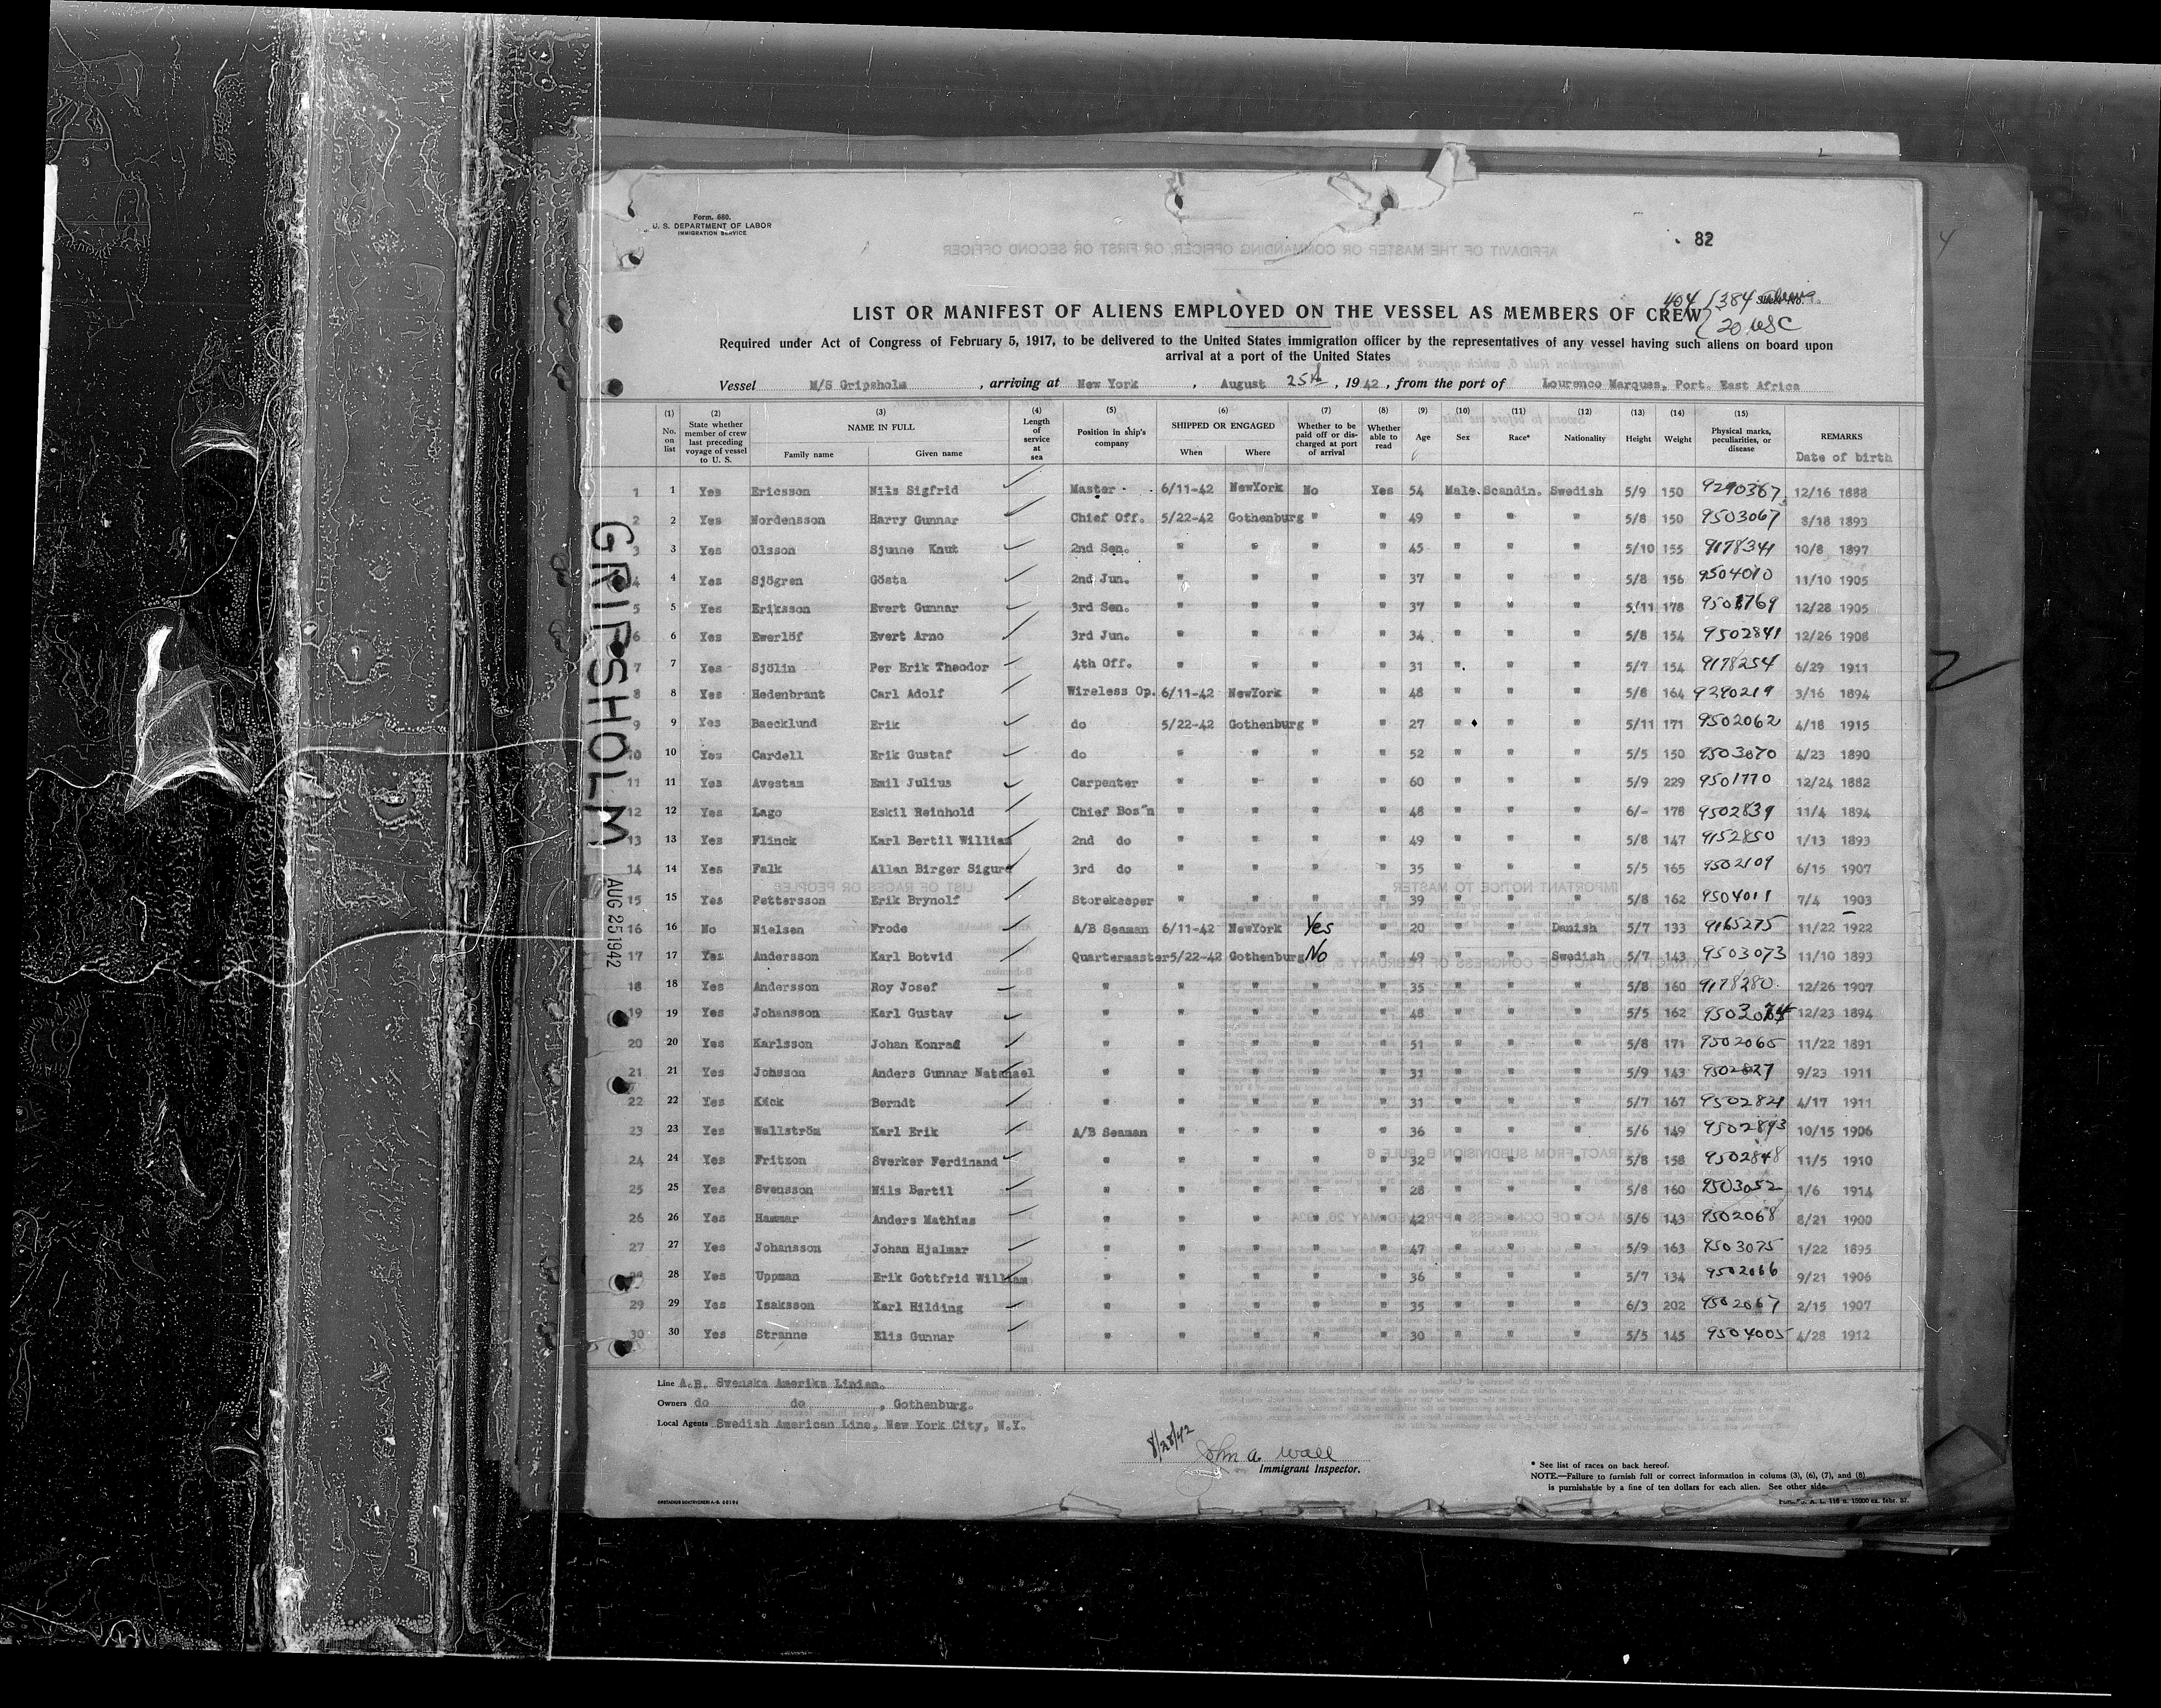 Form. 680.
U. S. DEPARTMENT OF LABOR
IMMIGRATION SERVICE
82
404 { 384 aliens
20 USC
LIST OR MANIFEST OF ALIENS EMPLOYED ON THE VESSEL AS MEMBERS OF CREW
Required under Act of Congress of February 5, 1917, to be delivered to the United States immigration officer by the representatives of any vessel having such aliens on board upon
arrival at a port of the United States
Vessel M/S Gripsholm , arriving at New York , August 25th , 1942 , from the port of Lourenco Marques, Port. East Africa
(1) No. on list (2) State whether member of crew last preceding voyage of vessel to U. S. (3) NAME IN FULL Family name Given name (4) Length of service at sea (5) Position in ship's company (6) SHIPPED OR ENGAGED When Where (7) Whether to be paid off or discharged at port of arrival (8) Whether able to read (9) Age (10) Sex (11) Race* (12) Nationality (13) Height (14) Weight (15) Physical marks, peculiarities, or disease REMARKS Date of birth
1 1 Yes Ericsson Nils Sigfrid Master 6/11-42 NewYork No Yes 54 Male Scandin. Swedish 5/9 150 9290367 12/16 1888
2 2 Yes Nordensson Harry Gunnar Chief Off. 5/22-42 Gothenburg " " 49 " " " 5/8 150 9503067 8/18 1893
3 3 Yes Olsson Sjunne Knut 2nd Sen. " " " " 45 " " " 5/10 155 9178341 10/8 1897
4 4 Yes Sjögren Gösta 2nd Jun. " " " " 37 " " " 5/8 156 9504010 11/10 1905
5 5 Yes Eriksson Evert Gunnar 3rd Sen. " " " " 37 " " " 5/11 178 9501769 12/28 1905
6 6 Yes Ewerlöf Evert Arno 3rd Jun. " " " " 34 " " " 5/8 154 9502841 12/26 1908
7 7 Yes Sjölin Per Erik Theodor 4th Off. " " " " 31 " " " 5/7 154 9178254 6/29 1911
8 8 Yes Hedenbrant Carl Adolf Wireless Op. 6/11-42 NewYork " " 48 " " " 5/8 164 9290219 3/16 1894
9 9 Yes Baecklund Erik do 5/22-42 Gothenburg " " 27 " " " 5/11 171 9502062 4/18 1915
10 10 Yes Cardell Erik Gustaf do " " " " 52 " " " 5/5 150 9503070 4/23 1890
11 11 Yes Avestam Emil Julius Carpenter " " " " 60 " " " 5/9 229 9501770 12/24 1882
12 12 Yes Lago Eskil Reinhold Chief Bos"n " " " " 48 " " " 6/- 178 9502839 11/4 1894
13 13 Yes Flinck Karl Bertil William 2nd do " " " " 49 " " " 5/8 147 9152850 1/13 1893
14 14 Yes Falk Allan Birger Sigurd 3rd do " " " " 35 " " " 5/5 165 9502109 6/15 1907
15 15 Yes Pettersson Erik Brynolf Storekeeper " " " " 39 " " " 5/8 162 9504011 7/4 1903
16 16 No Nielsen Frode A/B Seaman 6/11-42 NewYork Yes " 20 " " Danish 5/7 133 9165275 11/22 1922
17 17 Yes Andersson Karl Botvid Quartermaster 5/22-42 Gothenburg No " 49 " " Swedish 5/7 143 9503073 11/10 1893
18 18 Yes Andersson Roy Josef " " " " " 35 " " " 5/8 160 9178280 12/26 1907
19 19 Yes Johansson Karl Gustav " " " " " 48 " " " 5/5 162 12/23 1894
20 20 Yes Karlsson Johan Konrad " " " " " 51 " " " 5/8 171 9502065 11/22 1891
21 21 Yes Johsson Anders Gunnar Natanael " " " " " 31 " " " 5/9 143 9502827 9/23 1911
22 22 Yes Käck Berndt " " " " " 31 " " " 5/7 167 9502821 4/17 1911
23 23 Yes Wallström Karl Erik A/B Seaman " " " " 36 " " " 5/6 149 9502893 10/15 1906
24 24 Yes Fritzon Sverker Ferdinand " " " " " 32 " " " 5/8 158 9502848 11/5 1910
25 25 Yes Svensson Nils Bertil " " " " " 28 " " " 5/8 160 9503052 1/6 1914
26 26 Yes Hammar Anders Mathias " " " " " 42 " " " 5/6 143 9502068 8/21 1900
27 27 Yes Johansson Johan Hjalmar " " " " " 47 " " " 5/9 163 9503075 1/22 1895
28 Yes Uppman Erik Gottfrid William " " " " " 36 " " " 5/7 134 9502066 9/21 1906
29 29 Yes Isaksson Karl Hilding " " " " " 35 " " " 6/3 202 9502067 2/15 1907
30 30 Yes Stranne Elis Gunnar " " " " " 30 " " " 5/5 145 9504005 4/28 1912
GRIPSHOLM
AUG 25 1942
Line A.B. Svenska Amerika Linien.
Owners do do , Gothenburg.
Local Agents Swedish American Line, New York City, N.Y.
8/28/42 John A. Wall
Immigrant Inspector.
* See list of races on back hereof.
NOTE.—Failure to furnish full or correct information in colums (3), (6), (7), and (8)
is punishable by a fine of ten dollars for each alien. See other side.